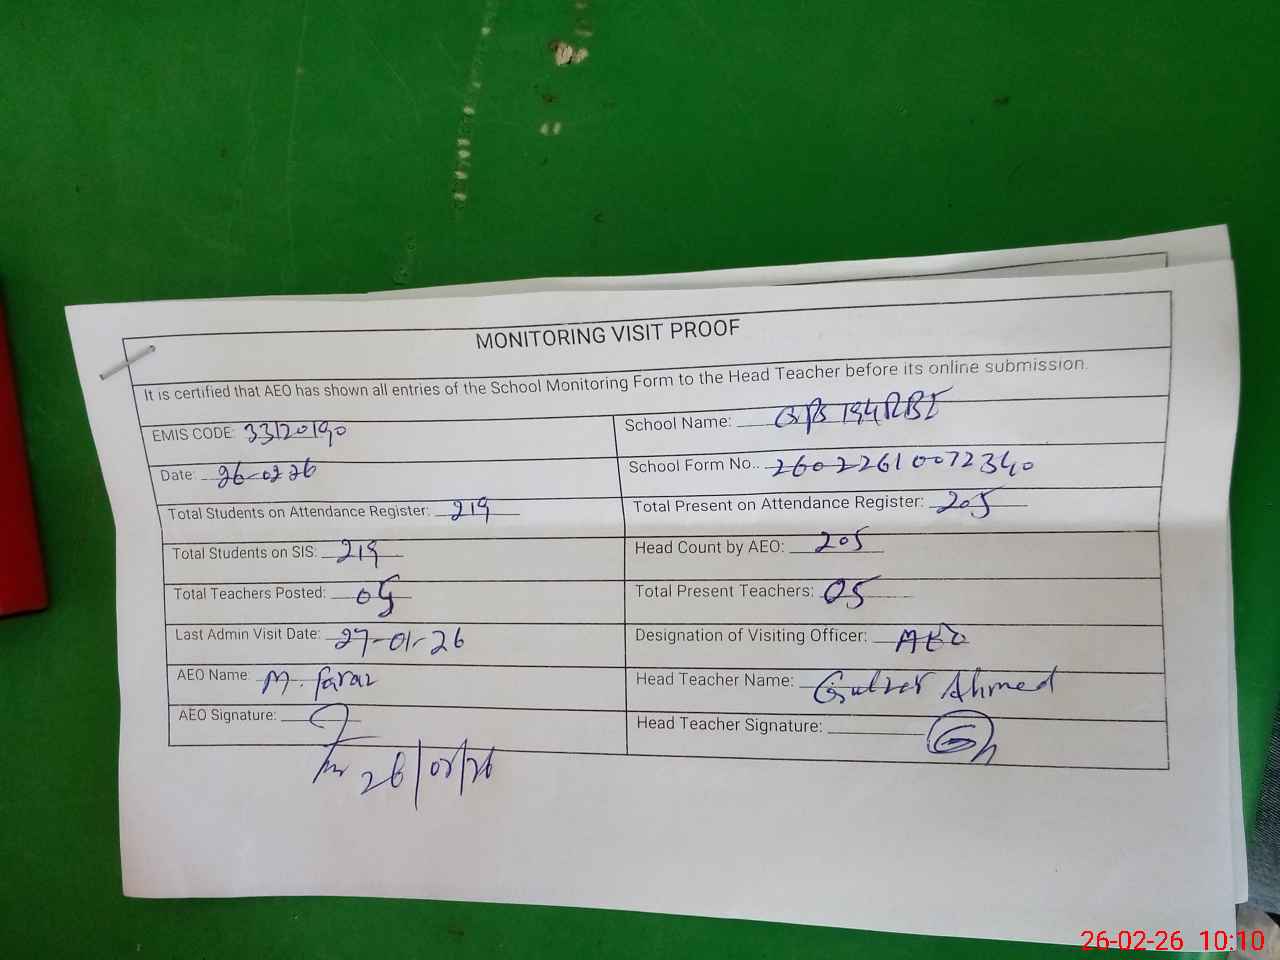 MONITORING VISIT PROOF
It is certified that AEO has shown all entries of the School Monitoring Form to the Head Teacher before its online submission.
EMIS CODE: 33120190
School Name: GPS 194RBI
Date: 26-02 26
School Form No.. 26022610072340
Total Students on Attendance Register: 219
Total Present on Attendance Register: 205
Total Students on SIS: 219
Head Count by AEO: 205
Total Teachers Posted: 05
Total Present Teachers: 05
Last Admin Visit Date: 27-01-26
Designation of Visiting Officer: AEO
AEO Name: M. Faraz
Head Teacher Name: Gulzar Ahmed
AEO Signature:
Head Teacher Signature:
26/02/26
26-02-26 10:10